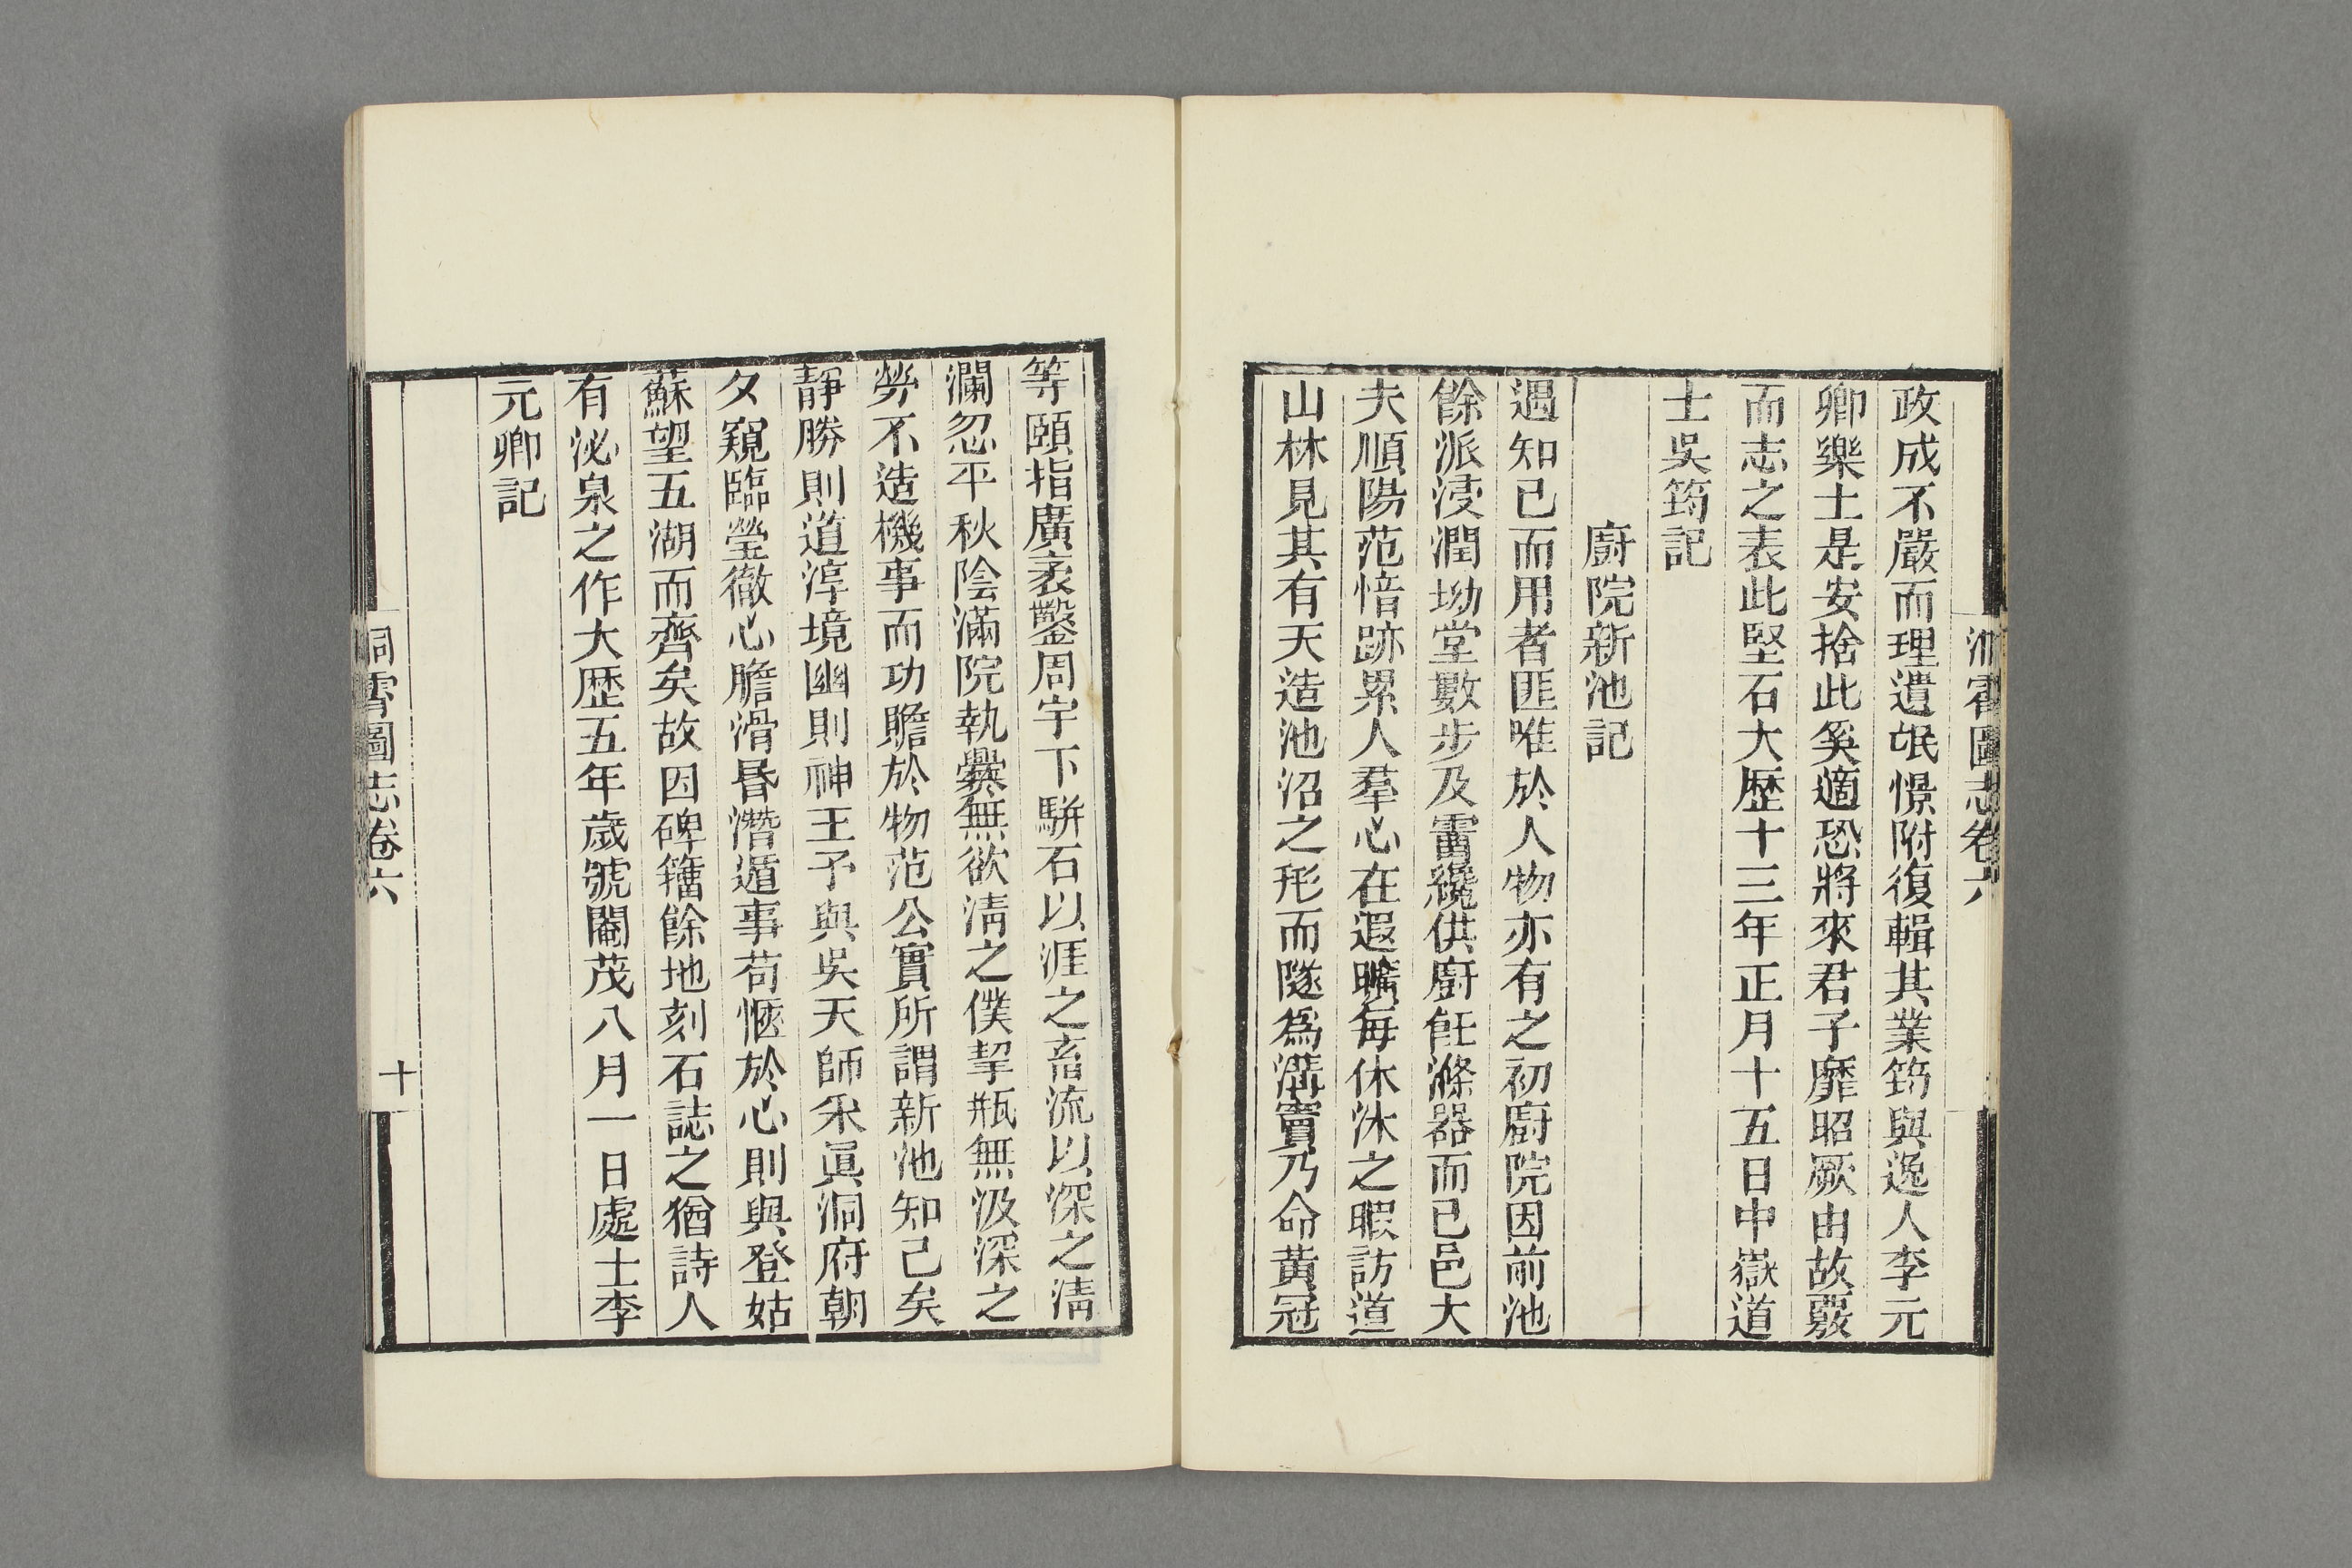 政成不嚴而理遺氓憬附復輯其業筠與逸人李元
卿樂士是安捨此奚適恐將來君子靡昭厥由故覈
而志之表此堅石大歷十三年正月十五日中嶽道
士吳筠記
廚院新池記
遇知已而用者匪唯於人物亦有之初廚院因前池
餘派浸潤坳堂數步及霤纔供廚飪滌器而已邑大
夫順陽范愔跡累人羣心在遐曠每休沐之暇訪道
山林見其有天造池沼之形而隧為溝竇乃命黃冠
等頤指廣袤鑿周宇下駢石以涯之畜流以深之淸
瀾忽平秋陰滿院執爨無欲淸之僕挈瓶無汲深之
勞不造機事而功贍於物范公實所謂新池知己矣
靜勝則道淳境幽則神王予與吳天師釆眞洞府朝
夕窺臨瑩徹心膽滑昬潛遁事茍愜於心則與登姑
蘇望五湖而齊矣故因碑籒餘地刻石誌之猶詩人
有泌泉之作大歷五年歲號閹茂八月一日處士李
元卿記
洞霄圖志卷六
十